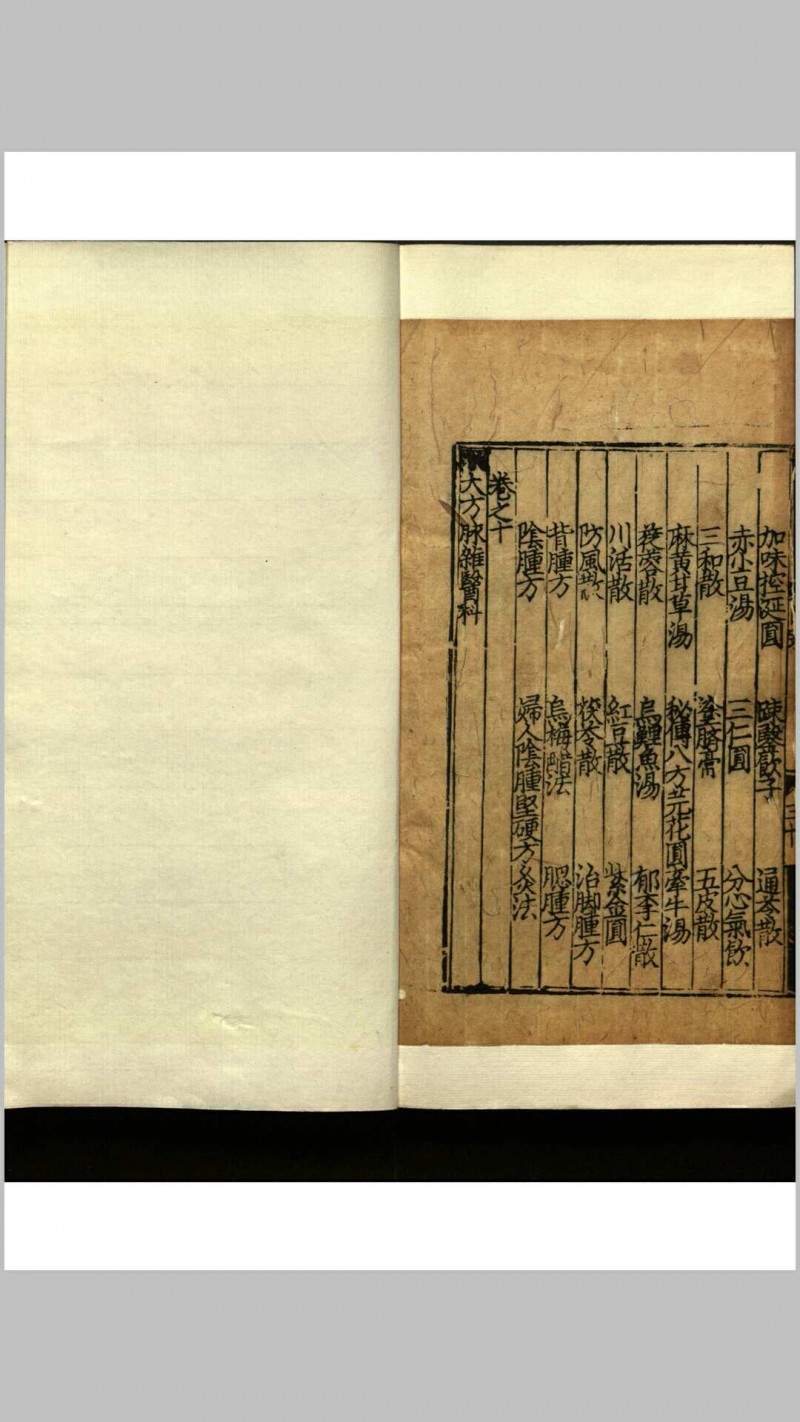 加味控涎圓　踈鑿飲子　通苓散
赤小豆湯　三仁圓　分心氣飲
三和散　塗臍膏　五皮散
麻黃甘草湯　秘傳八方芫花圓　牽牛湯
葰蓉散　烏鯉魚湯　郁李仁散
川活散　紅豆散　紫金圓
防風散　茯苓散　治脚腫方
背腫方　烏梅醋法　腮腫方
陰腫方　婦人陰腫堅硬方　灸法
卷之十
大方脉雜醫科